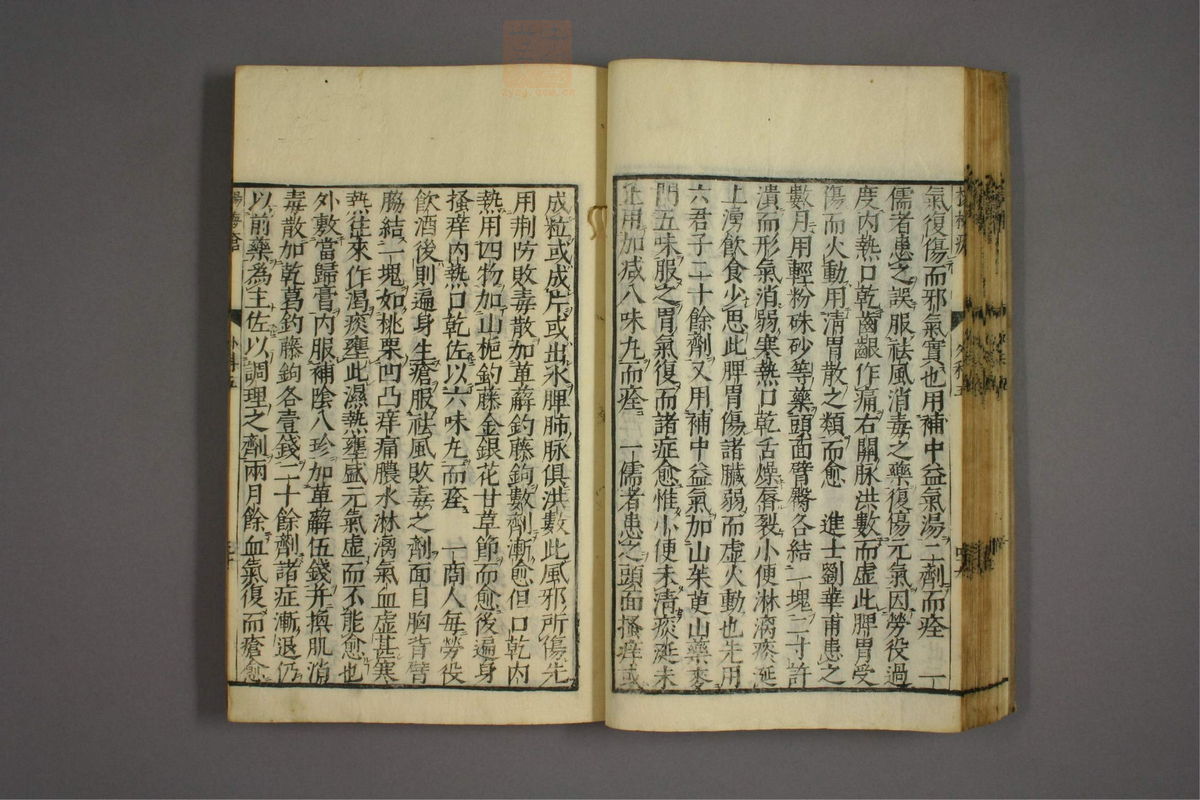 氣復傷而邪氣實也用補中益氣湯二劑而痊 一
儒者患之誤服祛風消毒之藥復傷元氣因勞役過
度内熱口乾齒齦作痛右關脉洪數而虚此脾胃受
傷而火動用清胃散之類而愈 進士劉華甫患之
數月用輕粉硃砂等藥頭面臂臀各結一塊二寸許
潰而形氣消弱寒熱口乾舌燥唇裂小便淋漓痰涎
上湧飲食少思此脾胃傷諸臟弱而虚火動也先用
六君子二十餘劑又用補中益氣加山茱萸山藥麥
門五味服之胃氣復而諸症愈惟小便未清痰涎未
止用加减八味丸而痊 一儒者患之頭面搔痒或
成粒或成片或出水脾肺脉俱洪數此風邪所傷先
用荆防敗毒散加萆薢釣藤鉤數劑漸愈但口乾内
熱用四物加山梔釣藤金銀花甘草節而愈後遍身
搔痒内熱口乾佐以六味丸而痊 一商人每勞役
飲酒後則遍身生瘡服祛風敗毒之劑面目胸背臂
脇結一塊如桃栗凹凸痒痛膿水淋漓氣血虚甚寒
熱往來作渴痰壅此濕熱壅盛元氣虚而不能愈也
外敷當歸膏内服補陰八珍加萆薢伍錢并換肌消
毒散加乾葛釣藤鉤各壹錢二十餘劑諸症漸退仍
以前藥為主佐以調理之劑兩月餘血氣復而瘡愈